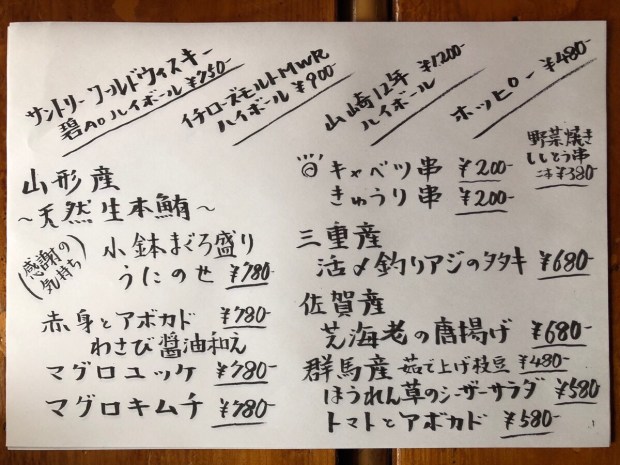 サントリーワールドウィスキー
碧Aoハイボール ¥750-
イチローズモルトMWR
ハイボール ¥900-
山崎12年 ¥1200-
ハイボール
ホッピー ¥480-
野菜焼き
ししとう串
二本 ¥380-
キャベツ串 ¥200-
きゅうり串 ¥200-
山形産
～天然生本鮪～
(感謝の
気持ち)
小鉢まぐろ盛り
うにのせ ¥780-
赤身とアボカド ¥780-
わさび醤油和え
マグロユッケ ¥780-
マグロキムチ ¥780-
三重産
活〆釣りアジのタタキ ¥680-
佐賀産
芝海老の唐揚げ ¥680-
群馬産 茹で上げ枝豆 ¥480-
ほうれん草のシーザーサラダ ¥580
トマトとアボカド ¥580-